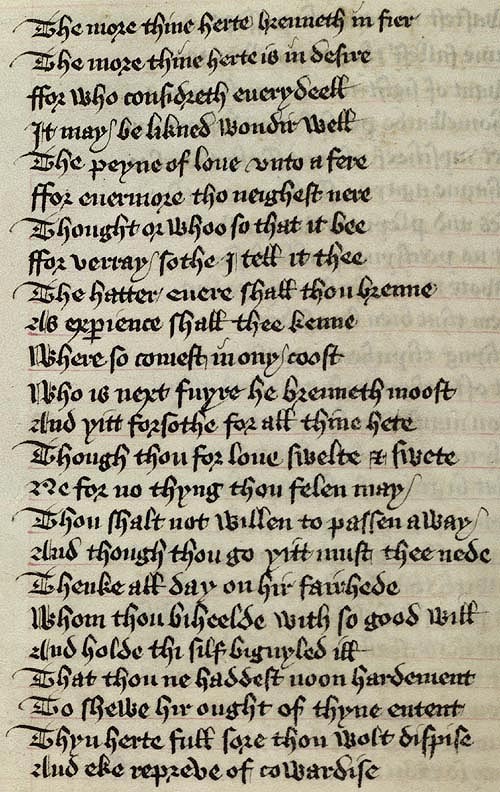 The more thine herte brenneth in fier
The more thine herte is in desire
ffor who considreth euery deell
It may be likned wondir well
The peyne of loue vnto a fere
ffor euermore tho neighest nere
Thought or whoo so that it bee
ffor verray sothe I tell it thee
The hatter euere shall thou brenne
As experience shall thee kenne
Where so comest in ony coost
Who is next fuyre he brenneth moost
And yitt forsothe for all thine hete
Though thou for loue swelte & swete
Ne for no thyng thou felen may
Thou shalt not willen to passen away
And though thou go yitt must thee nede
Thenke all day on hir fairhede
Whom thou biheelde with so good will
And holde thi silf biguyled ill
That thou ne haddest noon hardement
To shewe hir ought of thyne entent
Thyn herte full sore thou wolt dispise
And eke repreve of cowardise